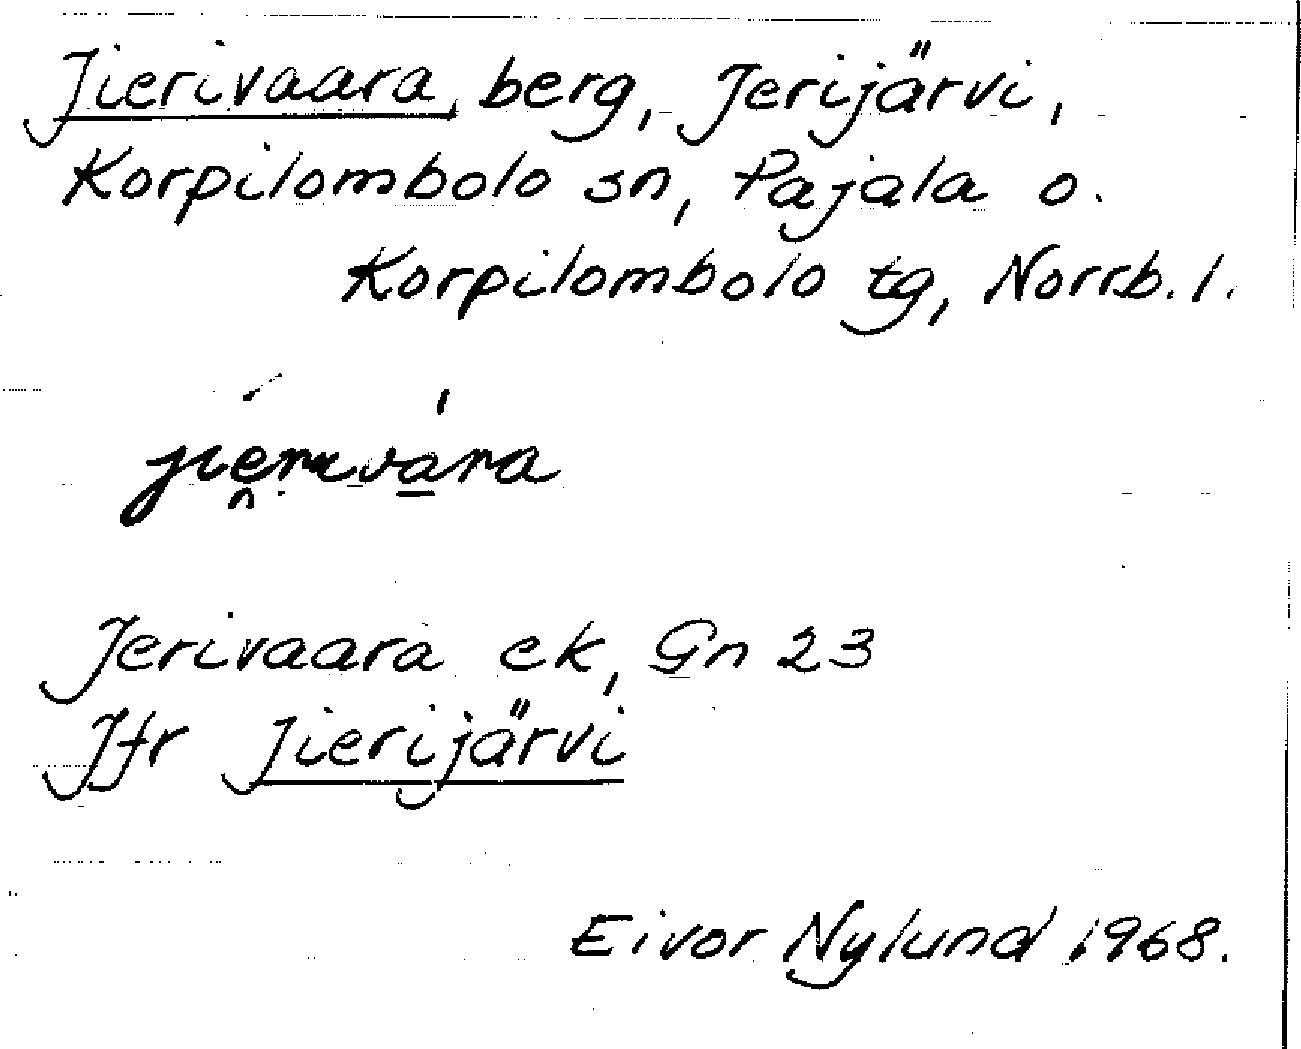 Jierivaara, berg, Jerijärvi,
Korpilombolo sn, Pajala o.
Korpilombolo tg, Norrb. l.
jierivara
Jerivaara ek, Gn 23
Jfr Jierijärvi
Eivor Nylund 1968.